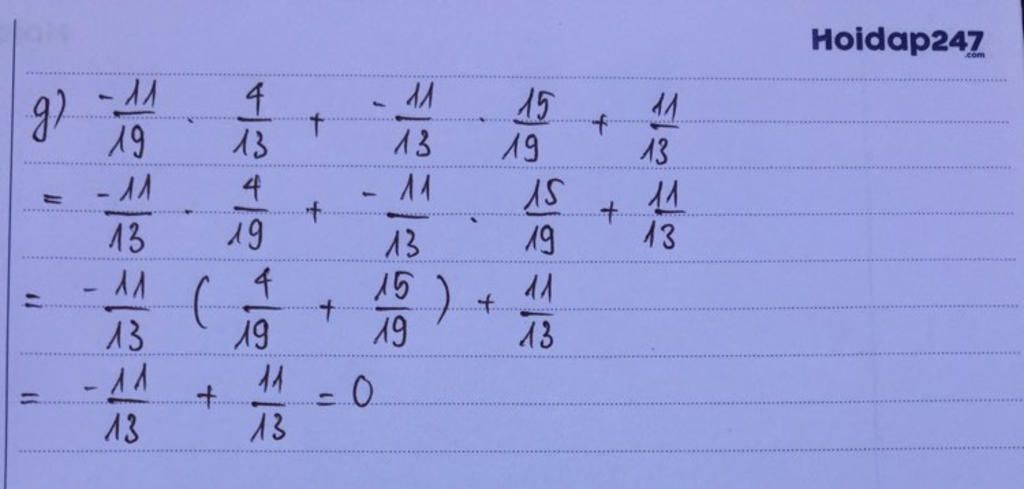 Hoidap247
.com
g) -11/19 . 4/13 + -11/13 . 15/19 + 11/13
= -11/13 . 4/19 + -11/13 . 15/19 + 11/13
= -11/13 ( 4/19 + 15/19 ) + 11/13
= -11/13 + 11/13 = 0